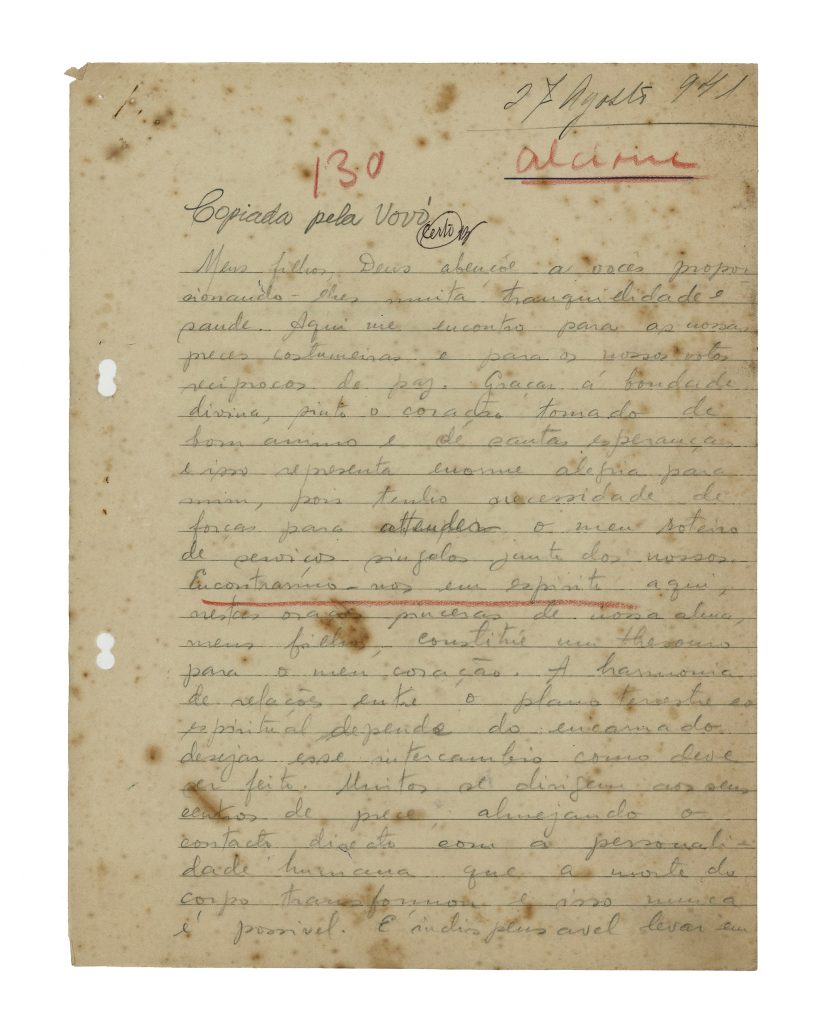 1.
27 Agosto 941
Alcione
130
Copiada pela Vovó
certo
Meus filhos, Deus abençôe a vocês propor
cionando-lhes muita tranquilidade e
saude. Aqui me encontro para as nossas
preces costumeiras e para os nossos votos
reciprocos de paz. Graças á bondade
divina, sinto o coração tomado de
bom animo e de santas esperanças
e isso representa enorme alegria para
mim, pois tenho necessidade de
forças para attender o meu roteiro
de serviços singelos junto dos nossos.
Encontrarmo-nos em espirito aqui,
nestas orações sinceras de nossa alma,
meus filhos, constitúe um thesouro
para o meu coração. A harmonia
de relações entre o plano terrestre e o
espiritual depende do encarnado
desejar esse intercambio como deve
ser feito. Muitos se dirigem aos seus
centros de prece, almejando o
contacto directo com a personali-
dade humana que a morte do
corpo transformou e isso nunca
é possivel. É indispensavel levar em